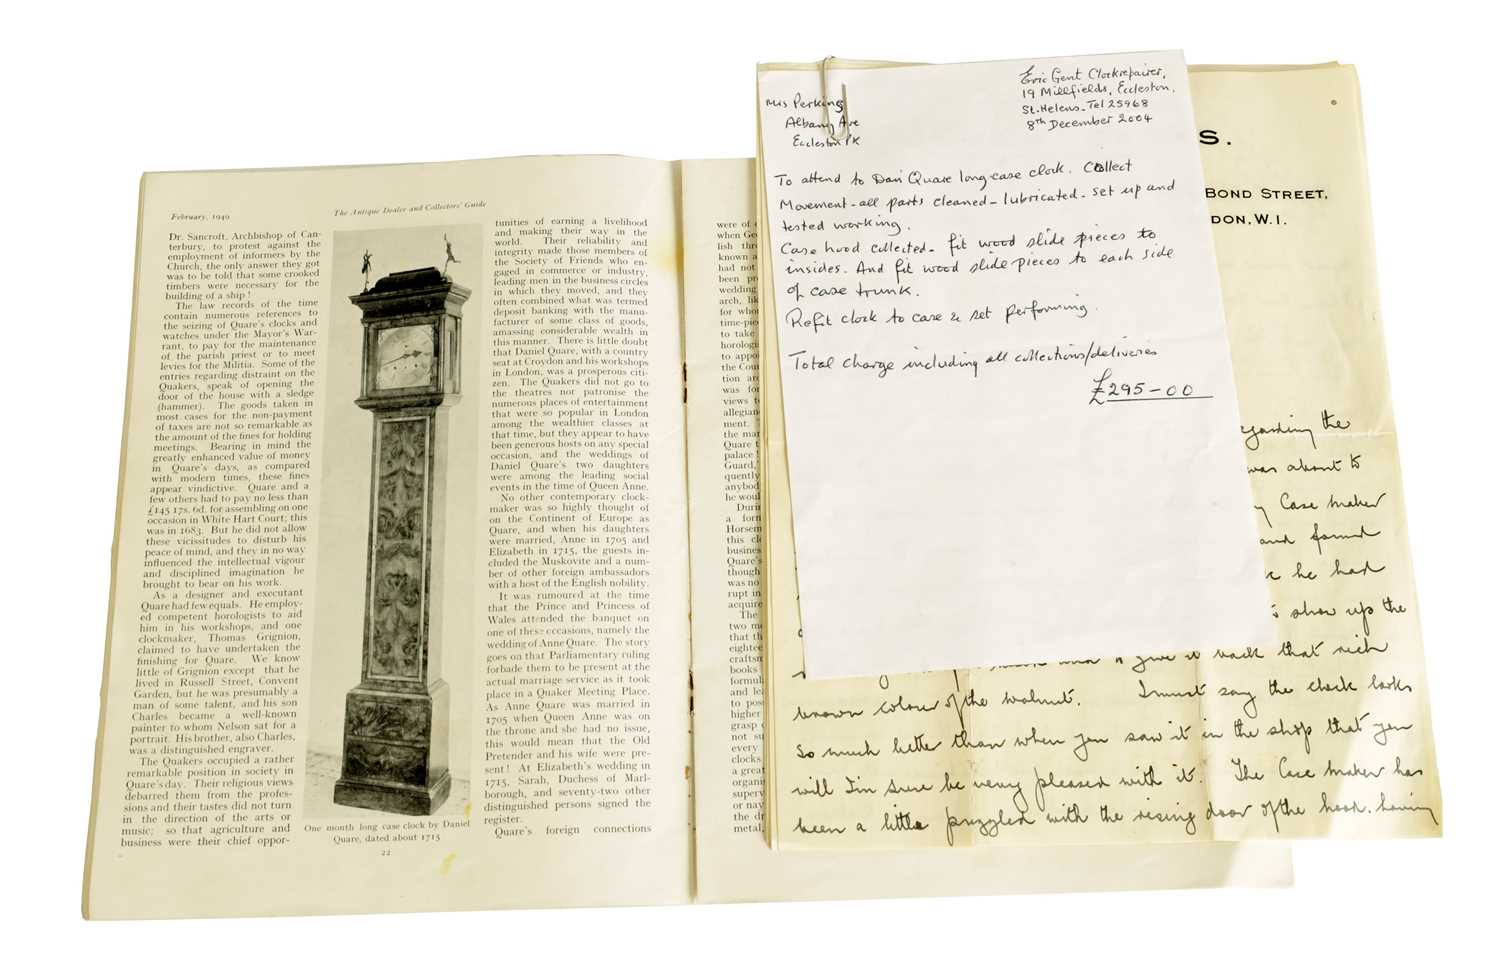 February, 1949
The Antique Dealer and Collectors' Guide
Dr. Sancroft, Archbishop of Can-
terbury, to protest against the
employment of informers by the
Church, the only answer they got
was to be told that some crooked
timbers were necessary for the
building of a ship !
The law records of the time
contain numerous references to
the seizing of Quare's clocks and
watches under the Mayor's War-
rant, to pay for the maintenance
of the parish priest or to meet
levies for the Militia. Some of the
entries regarding distraint on the
Quakers, speak of opening the
door of the house with a sledge
(hammer). The goods taken in
most cases for the non-payment
of taxes are not so remarkable as
the amount of the fines for holding
meetings. Bearing in mind the
greatly enhanced value of money
in Quare's days, as compared
with modern times, these fines
appear vindictive. Quare and a
few others had to pay no less than
£145 17s. 6d. for assembling on one
occasion in White Hart Court; this
was in 1683. But he did not allow
these vicissitudes to disturb his
peace of mind, and they in no way
influenced the intellectual vigour
and disciplined imagination he
brought to bear on his work.
As a designer and executant
Quare had few equals. He employ-
ed competent horologists to aid
him in his workshops, and one
clockmaker, Thomas Grignion,
claimed to have undertaken the
finishing for Quare. We know
little of Grignion except that he
lived in Russell Street, Convent
Garden, but he was presumably a
man of some talent, and his son
Charles became a well-known
painter to whom Nelson sat for a
portrait. His brother, also Charles,
was a distinguished engraver.
The Quakers occupied a rather
remarkable position in society in
Quare's day. Their religious views
debarred them from the profes-
sions and their tastes did not turn
in the direction of the arts or
music; so that agriculture and
business were their chief oppor-
One month long case clock by Daniel
Quare, dated about 1715
22
tunities of earning a livelihood
and making their way in the
world. Their reliability and
integrity made those members of
the Society of Friends who en-
gaged in commerce or industry,
leading men in the business circles
in which they moved, and they
often combined what was termed
deposit banking with the manu-
facturer of some class of goods,
amassing considerable wealth in
this manner. There is little doubt
that Daniel Quare, with a country
seat at Croydon and his workshops
in London, was a prosperous citi-
zen. The Quakers did not go to
the theatres not patronise the
numerous places of entertainment
that were so popular in London
among the wealthier classes at
that time, but they appear to have
been generous hosts on any special
occasion, and the weddings of
Daniel Quare's two daughters
were among the leading social
events in the time of Queen Anne.
No other contemporary clock-
maker was so highly thought of
on the Continent of Europe as
Quare, and when his daughters
were married, Anne in 1705 and
Elizabeth in 1715, the guests in-
cluded the Muskovite and a num-
ber of other foreign ambassadors
with a host of the English nobility.
It was rumoured at the time
that the Prince and Princess of
Wales attended the banquet on
one of these occasions, namely the
wedding of Anne Quare. The story
goes on that Parliamentary ruling
forbade them to be present at the
actual marriage service as it took
place in a Quaker Meeting Place.
As Anne Quare was married in
1705 when Queen Anne was on
the throne and she had no issue,
this would mean that the Old
Pretender and his wife were pre-
sent ! At Elizabeth's wedding in
1715, Sarah, Duchess of Marl-
borough, and seventy-two other
distinguished persons signed the
register.
Quare's foreign connections
were of
when Ge
lish thr
known a
had not
been pr
wedding
arch, lik
for who
time-pie
to take
horologi
to appo
the Cou
tion ar
was for
views t
allegian
ment.
the mar
Quare t
palace !
Guard,
quently
anybod
he woul
Durin
a form
Horsem
this cl
business
Quare's
though
was no
rupt in
acquire
The
two me
that th
eightee
craftsm
books
formula
and lea
to pos
higher
grasp o
not su
every
clocks
a great
organi
superv
or nay
the dr
metal,
Mrs Perkins
Albany Ave
Eccleston PK
Eric Gent Clockrepairer,
19 Millfields, Eccleston.
St. Helens - Tel 25968
8th December 2004
To attend to Dan' Quare long-case clock. Collect
Movement - all parts cleaned - lubricated - set up and
tested working.
Case hood collected - fit wood slide pieces to
insides. And fit wood slide pieces to each side
of case trunk.
Refit clock to case & set performing.
Total charge including all collections/deliveries
£295-00
S.
BOND STREET,
DON, W.I.
egarding the
was about to
Case maker
and found
he had
show up the
give it back that rich
brown colour of the walnut. I must say the clock looks
so much better than when you saw it in the shop that you
will I'm sure be very pleased with it. The Case maker has
been a little puzzled with the rising door of the hood. having